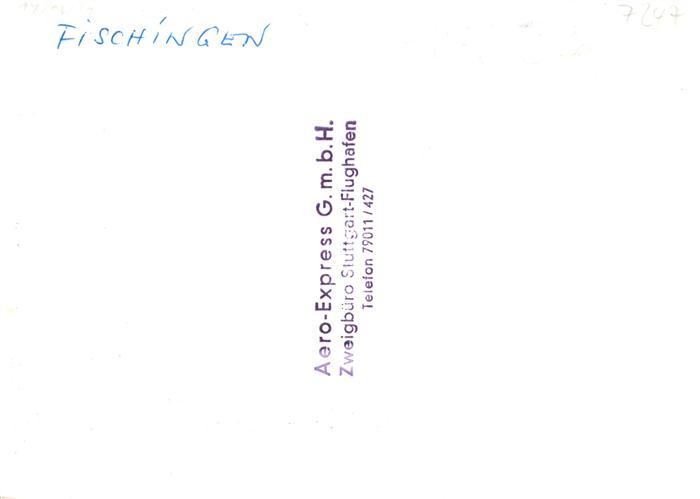 FiSCHiNGEN
7247
Aero-Express G. m. b. H.
Zweigbüro Stuttgart-Flughafen
Telefon 79011/427